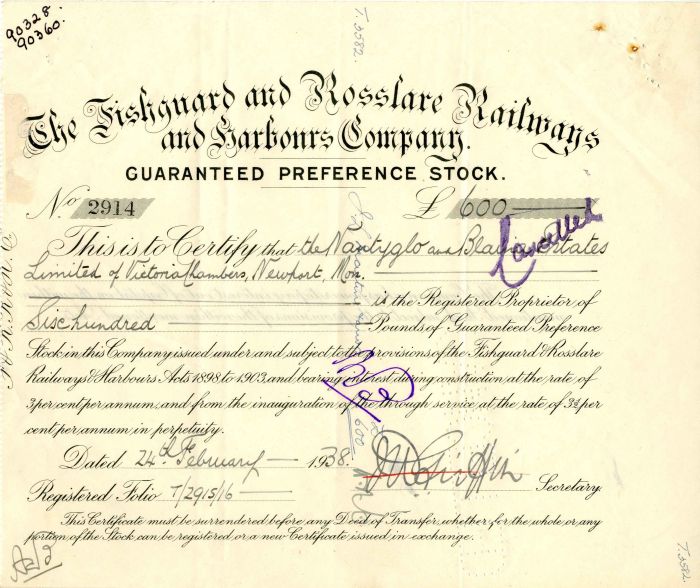 90328.
90360.
T. 5582.
The Fishguard and Rosslare Railways
and Harbours Company.
GUARANTEED PREFERENCE STOCK.
No. 2914
£ 600
Cancelled
This is to Certify that the Nantyglo and Blaina Estates
Limited of Victoria Chambers, Newport, Mon.
is the Registered Proprietor of
Six hundred Pounds of Guaranteed Preference
Stock in this Company issued under and subject to the provisions of the Fishguard & Rosslare
Railways & Harbours Acts 1898 to 1903, and bearing interest during construction at the rate of
3 per cent per annum, and from the inauguration of the through service at the rate of 3½ per
cent per annum in perpetuity.
600
Dated 24th February 1938.
Secretary.
Registered Folio T/2915/6
This Certificate must be surrendered before any Deed of Transfer, whether for the whole or any
portion of the Stock can be registered or a new Certificate issued in exchange.
T. 5582